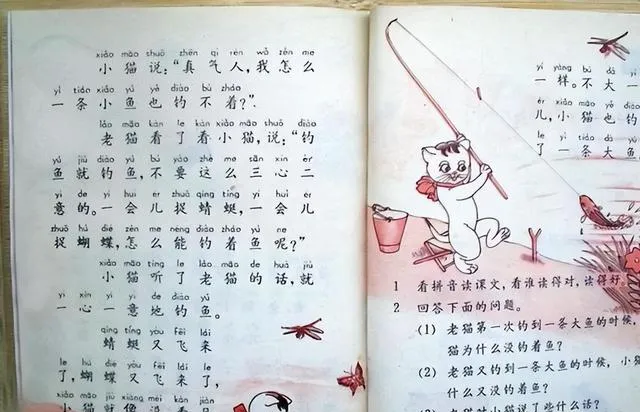 xiǎo māo shuō zhēn qì rén wǒ zěn me
小猫说：“真气人，我怎么
yì tiáo xiǎo yú yě diào bù zháo
一条小鱼也钓不着？”
lǎo māo kàn le kàn xiǎo māo shuō diào
老猫看了看小猫，说：“钓
yú jiù diào yú bú yào zhè me sān xīn èr
鱼就钓鱼，不要这么三心二
yì de yì huì er zhuō qīng tíng yì huì er
意的。一会儿捉蜻蜓，一会儿
zhuō hú dié zěn me néng diào zháo yú ne
捉蝴蝶，怎么能钓着鱼呢？”
xiǎo māo tīng le lǎo māo de huà jiù
小猫听了老猫的话，就
yì xīn yí yì de diào yú
一心一意地钓鱼。
qīng tíng yòu fēi lái
蜻蜓又飞来
le hú dié yòu fēi lái le
了，蝴蝶又飞来了，
xiǎo māo jiù xiàng méi kàn jiàn
小猫就像没看见
yí yàng bú dà yí
一样。不大一
ér xiǎo māo yě diào
儿，小猫也钓
le yì tiáo dà yú
了一条大鱼
1 看拼音读课文，看谁读得对，读得好。
2 回答下面的问题。
(1) 老猫第一次钓到一条大鱼的时候，
猫为什么没钓着鱼？
(2) 老猫又钓到一条大鱼的时候，小
什么又没钓着鱼？